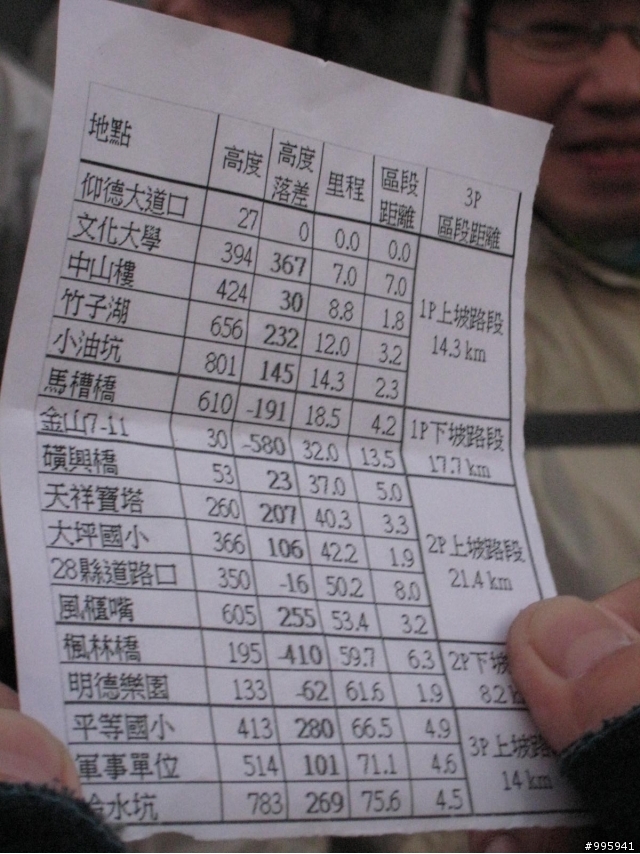 地點 高度 高度落差 里程 區段距離 3P區段距離
仰德大道口 27 0 0.0 0.0
文化大學 394 367 7.0 7.0
中山樓 424 30 8.8 1.8
竹子湖 656 232 12.0 3.2
小油坑 801 145 14.3 2.3
1P上坡路段
14.3 km
馬槽橋 610 -191 18.5 4.2
金山7-11 30 -580 32.0 13.5
1P下坡路段
17.7 km
磺興橋 53 23 37.0 5.0
天祥寶塔 260 207 40.3 3.3
大坪國小 366 106 42.2 1.9
28縣道路口 350 -16 50.2 8.0
風櫃嘴 605 255 53.4 3.2
2P上坡路段
21.4 km
楓林橋 195 -410 59.7 6.3
明德樂園 133 -62 61.6 1.9
2P下坡
8.2
平等國小 413 280 66.5 4.9
軍事單位 514 101 71.1 4.6
水坑 783 269 75.6 4.5
3P上坡路
14 km
#995941